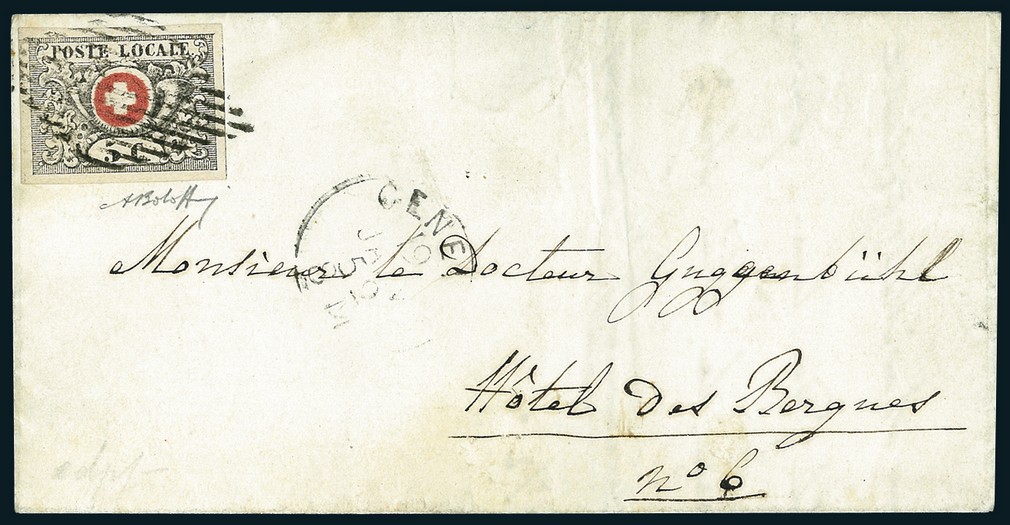 POSTE LOCALE
5 c.
GENE
Monsieur le Docteur Guggenbühl
Hôtel des Bergues
nº 6